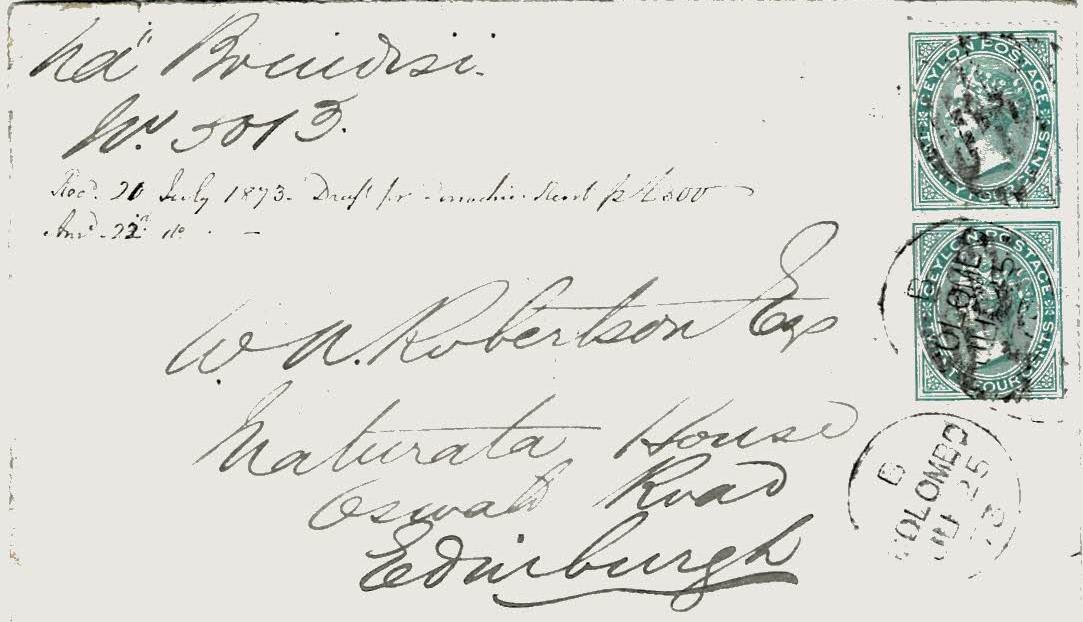 Via Brindisi.
No. 5013.
Recd. 20 July 1873. Draft for
Ansd. 22nd do. -
W. N. Robertson Esq
Maturata House
Oswald Road
Edinburgh
CEYLON POSTAGE
TWENTY FOUR CENTS
CEYLON POSTAGE
TWENTY FOUR CENTS
B
COLOMBO
B
COLOMBO
JU 25
73